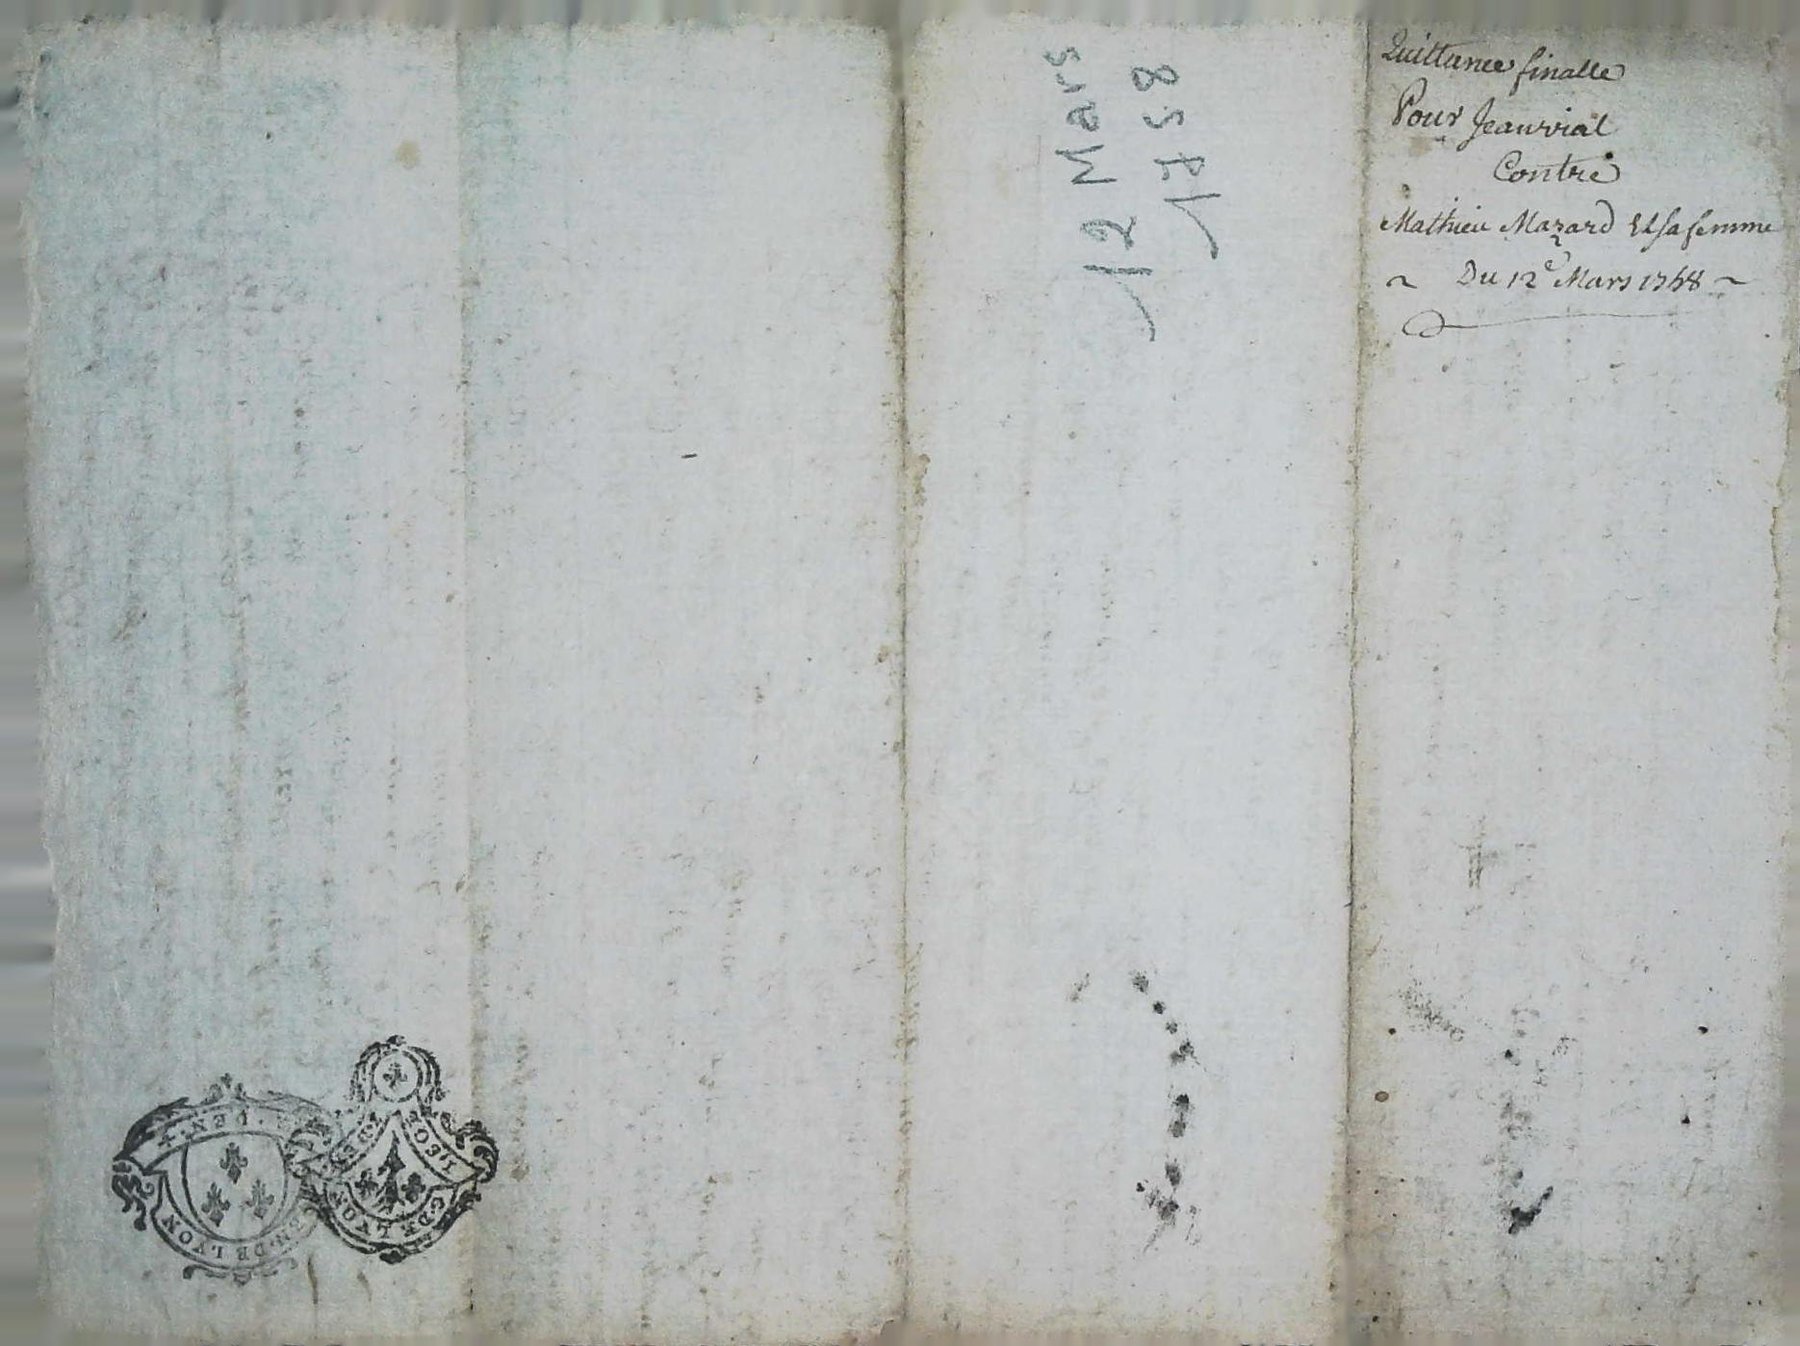 Quittance finalle
Pour Jean vial
Contre
Mathieu Mazard Et sa femme
~ Du 12e Mars 1758 ~
12 Mars
1758
DEN.
GEN. DE LYON
G. DE LYON